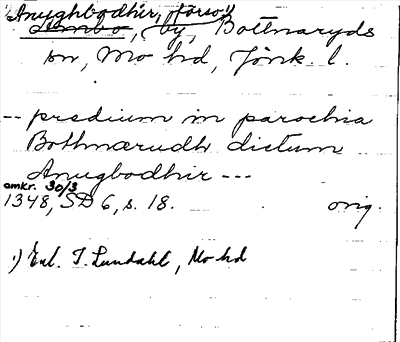 Anughbodhir, försv. 1)
Limbo, by, Bottnaryds
sn, Mo hd, Jönk. l.
-- predium in parochia
Bothnærudh dictum
Anugbodhir ---
omkr. 30/3
1348, SD 6, s. 18. orig.
1) Enl. I. Lundahl, Mo hd